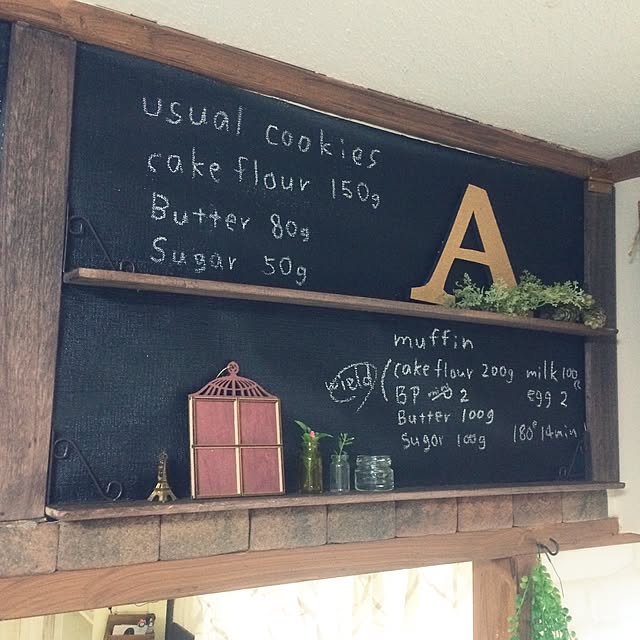 usual cookies
cake flour 150g
Butter 80g
Sugar 50g
A
muffin
wield
cake flour 200g milk 100cc
BP 2 egg 2
Butter 100g
Sugar 100g 180° 14min